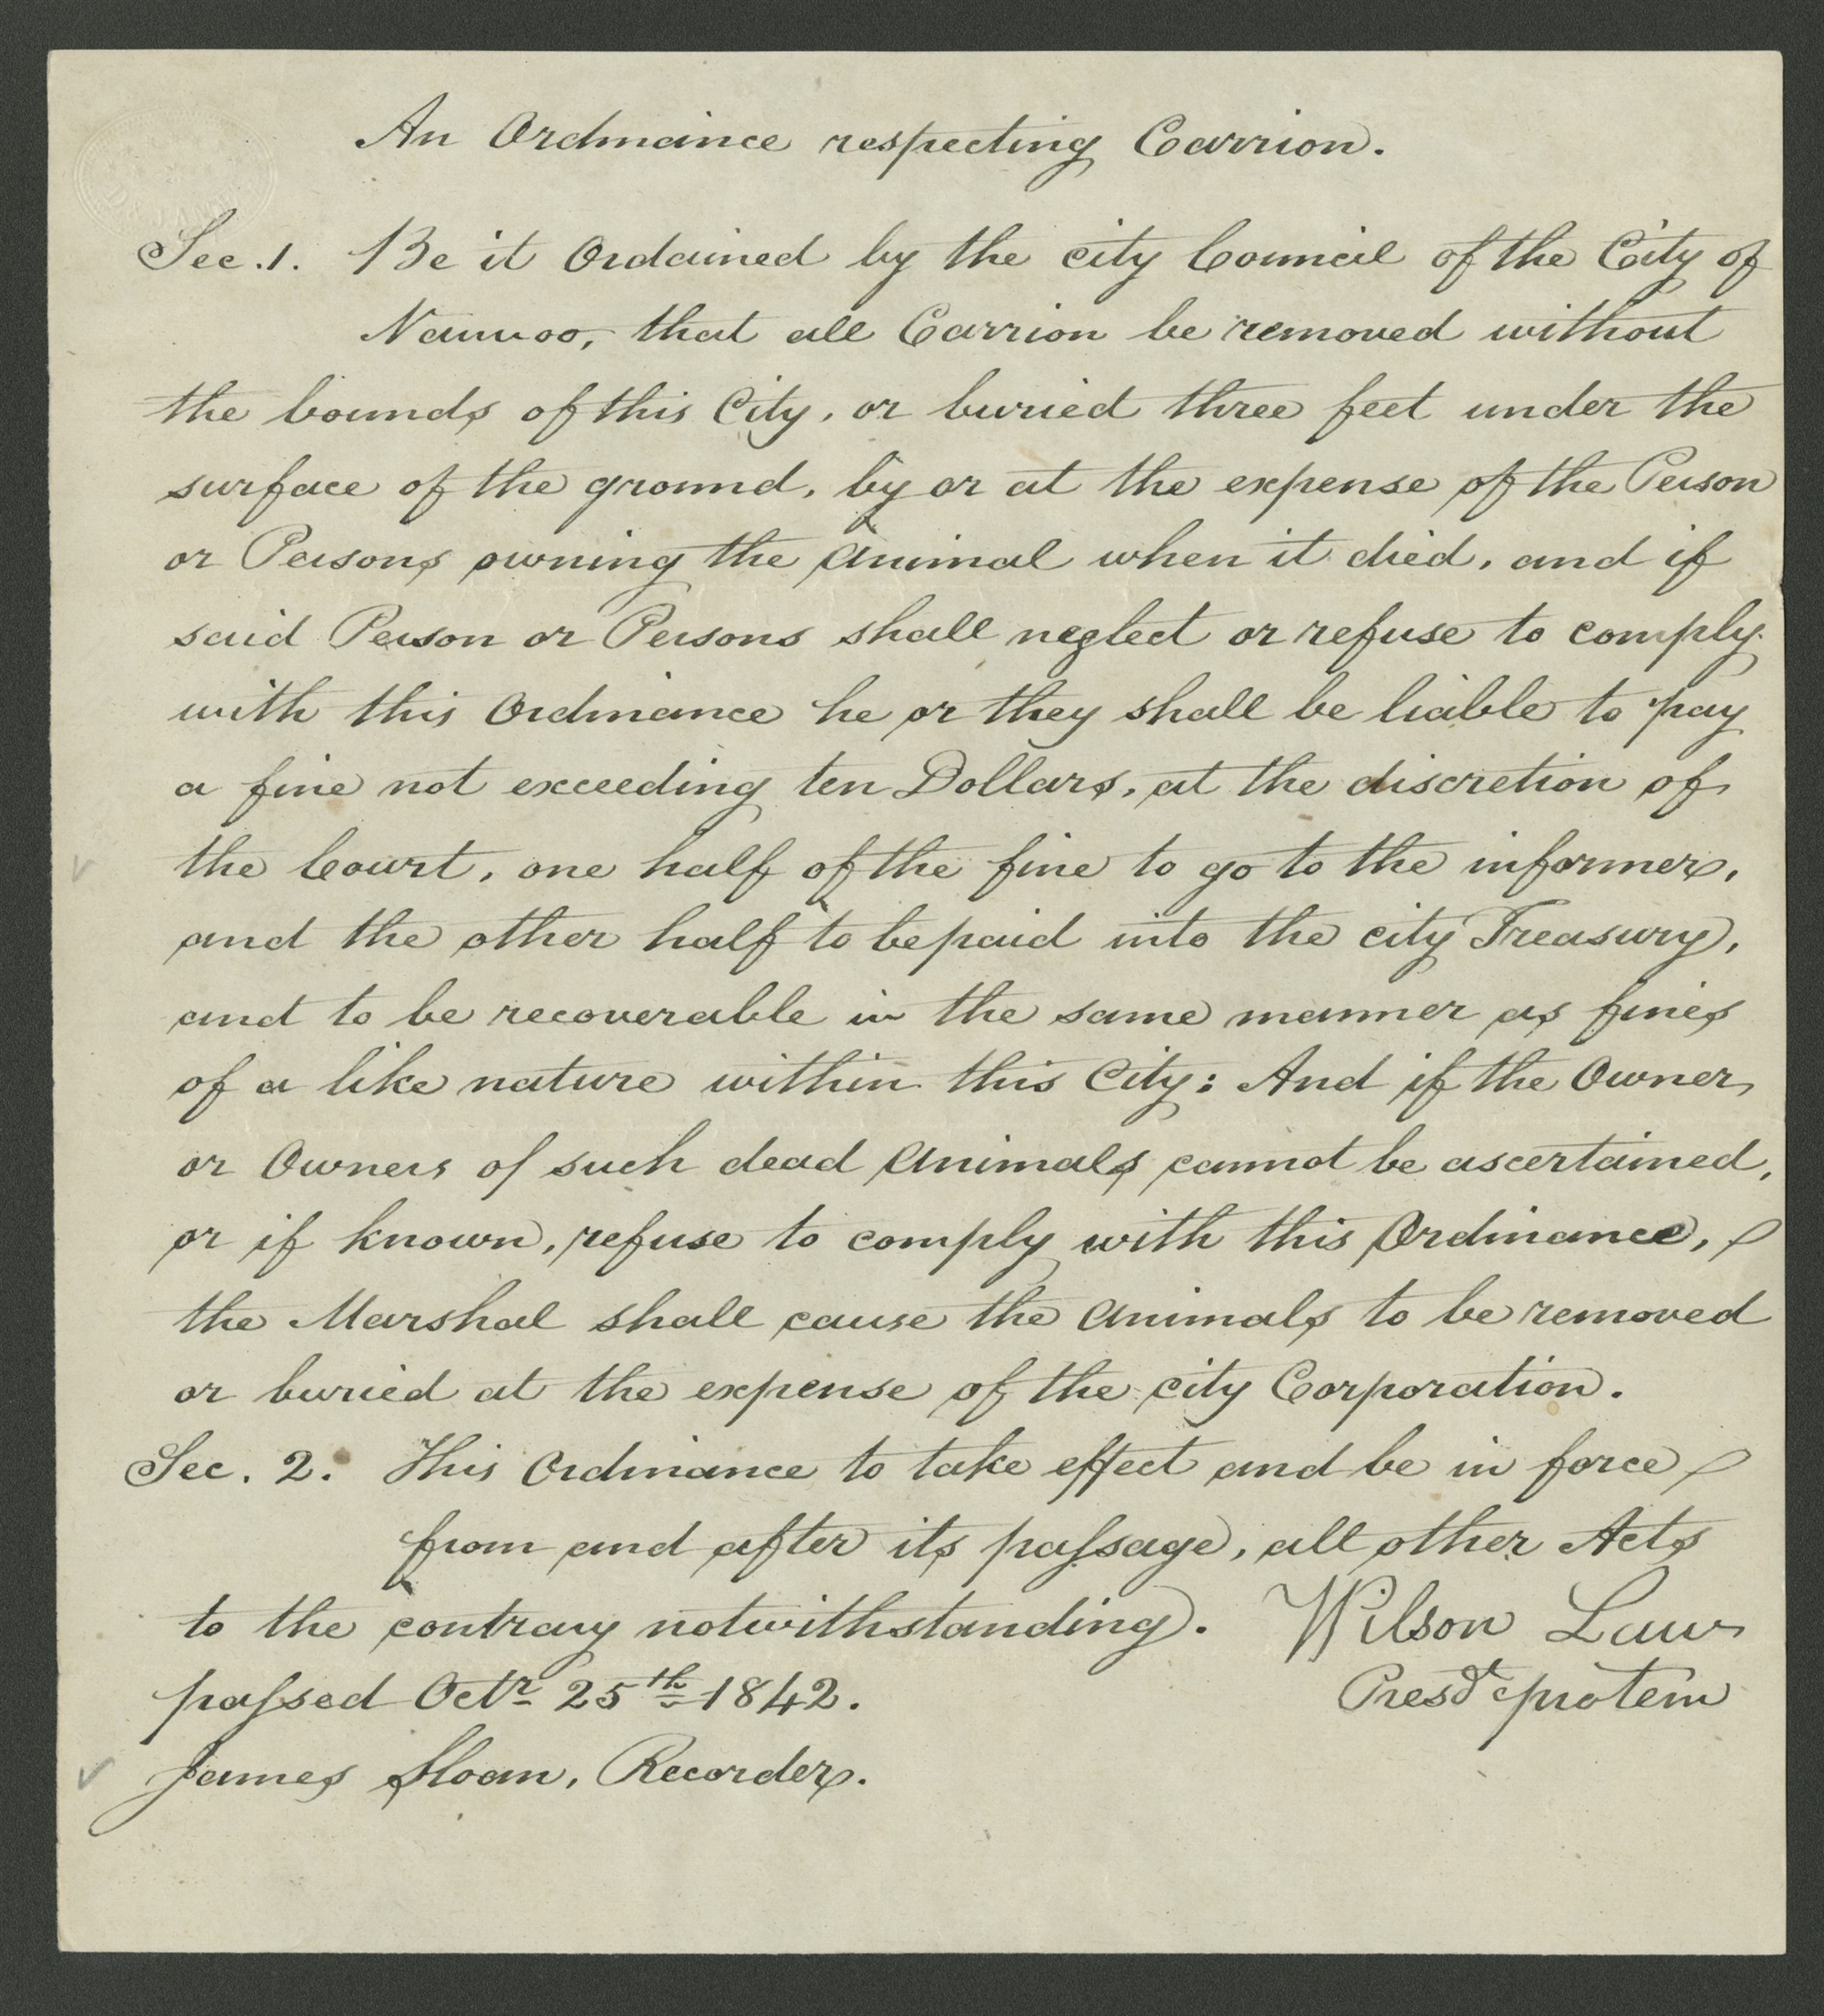 An Ordinance respecting Carrion.
Sec. 1. Be it Ordained by the city Council of the City of
Nauvoo, that all Carrion be removed without
the bounds of this City, or buried three feet under the
surface of the ground, by or at the expense of the Person
or Persons owning the Animal when it died, and if
said Person or Persons shall neglect or refuse to comply
with this Ordinance he or they shall be liable to pay
a fine not exceeding ten Dollars, at the discretion of
the Court, one half of the fine to go to the informer,
and the other half to be paid into the city Treasury,
and to be recoverable in the same manner as fines
of a like nature within this City: And if the Owner
or Owners of such dead Animals cannot be ascertained,
or if known, refuse to comply with this Ordinance,
the Marshal shall cause the Animals to be removed
or buried at the expense of the city Corporation.
Sec. 2. This Ordinance to take effect and be in force
from and after its paſsage, all other Acts
to the contrary notwithstanding. Wilson Law
paſsed Octr 25th 1842. Presdt protem
James Sloan, Recorder.